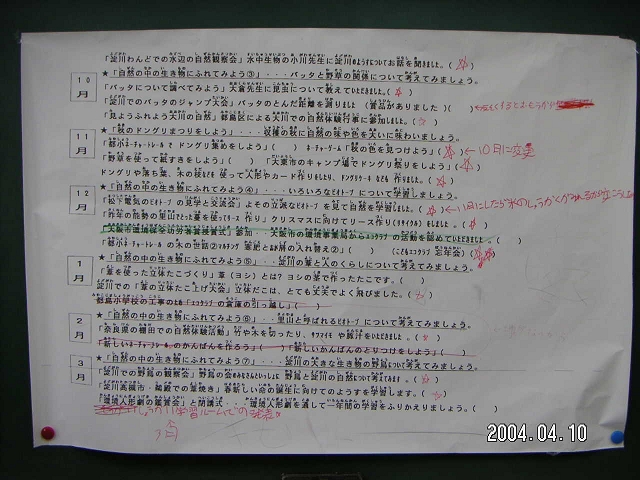 「淀川わんどでの水辺の自然観察会」水中生物の小川先生に淀川のようすについてお話を聞きました。( )
10月
★「自然の中の生き物にふれてみよう③」・・・バッタと野草の関係について考えてみましょう。
「バッタについて調べてみよう」大倉先生に昆虫について教えていただきました。( )
「淀川でのバッタのジャンプ大会」バッタのとんだ距離を測りました（賞品がありました）( )
「見ようふれよう大川の自然」都島区による大川での自然体験行事に参加しました。( )
11月
★「秋のドングリまつりをしよう」・・・収穫の秋に自然の味や色を大いに味わいましょう。
「都小ネーチャートレールでドングリ集めをしよう」( ) ネーチャーゲーム「秋の色を見つけよう」( )←10日に変更
「野草を使って紙すきをしよう」( ) 「大東市のキャンプ場でドングリ祭りをしよう」( )
ドングリや落ち葉、木の枝などを使って人形やカード作りをしたり、ドングリクッキーなども作りました。
12月
★「自然の中の生き物にふれてみよう④」・・・いろいろなビオトープについて学習しましょう。
「松下電気のビオトープの見学と交流会」よその立派なビオトープを見て自然を学習しました。( )
「昨年の能勢の里山でとった蔓を使ってリース作り」クリスマスに向けてリース作り(リサイクル)をしました。( )
「大阪市環境保全功労者賞授賞式」参加・・・大阪市の環境事業局からエコクラブの活動を認めていただきました。
「都小ネーチャートレールの木の世話②」( ) (こどもエコクラブ忘年会)( )
1月
★「自然の中の生き物にふれてみよう⑤」・・・淀川の葦と人のくらしについて考えてみましょう。
「葦を使った立体たこづくり」葦（ヨシ）とは？ヨシの茎で作ったたこです。( )
淀川での「葦の立体たこ上げ大会」立体だこは、とても丈夫でよく飛びました。( )
都島小学校の工事のため「エコクラブの倉庫の引っ越し」( )
2月
★「自然の中の生き物にふれてみよう⑥」・・・里山と呼ばれるビオトープについて考えてみましょう。
「奈良県の棚田での自然体験活動」竹や木を切ったり、サツマイモや豚汁をいただきました。( )
「新しいネーチャートレールのかんばんを作ろう」( )「新しいかんばんのとりつけをしよう」( )
3月
★「自然の中の生き物にふれてみよう⑦」・・・淀川の大きな自然の野鳥について考えてみましょう。
「淀川での野鳥の観察会」野鳥の会のみなさんといっしょに野鳥と淀川の自然について考えてみます。( )
「淀川高槻市・鵜殿での葦焼き」春新しい命の誕生に向けてのようすを学習します。( )
「環境人形劇の鑑賞会」と閉講式・・・環境人形劇を通して一年間の学習をふりかえりましょう。( )
学習ルームでの
2004.04.10